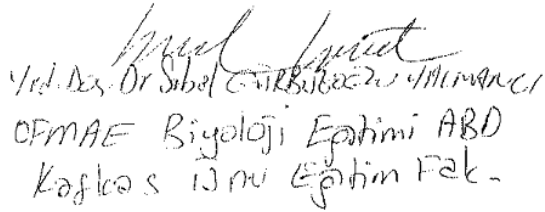 Yrd. Doç. Dr Sibel GÜRBÜZOĞLU YALMANCI
OFMAE Biyoloji Eğitimi ABD
Kafkas Ünv Eğitim Fak.